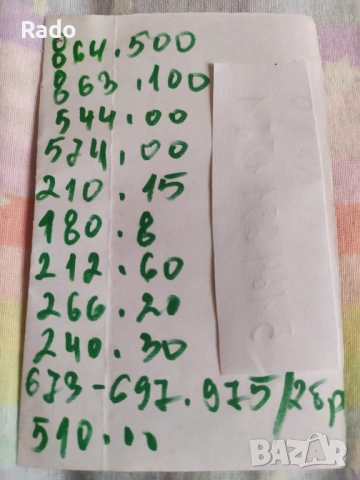 Rado
864.500
863.100
544.00
574.00
210.15
180.8
212.60
266.20
240.30
673-697.975/2бр
510.
bazar
БАЗАР